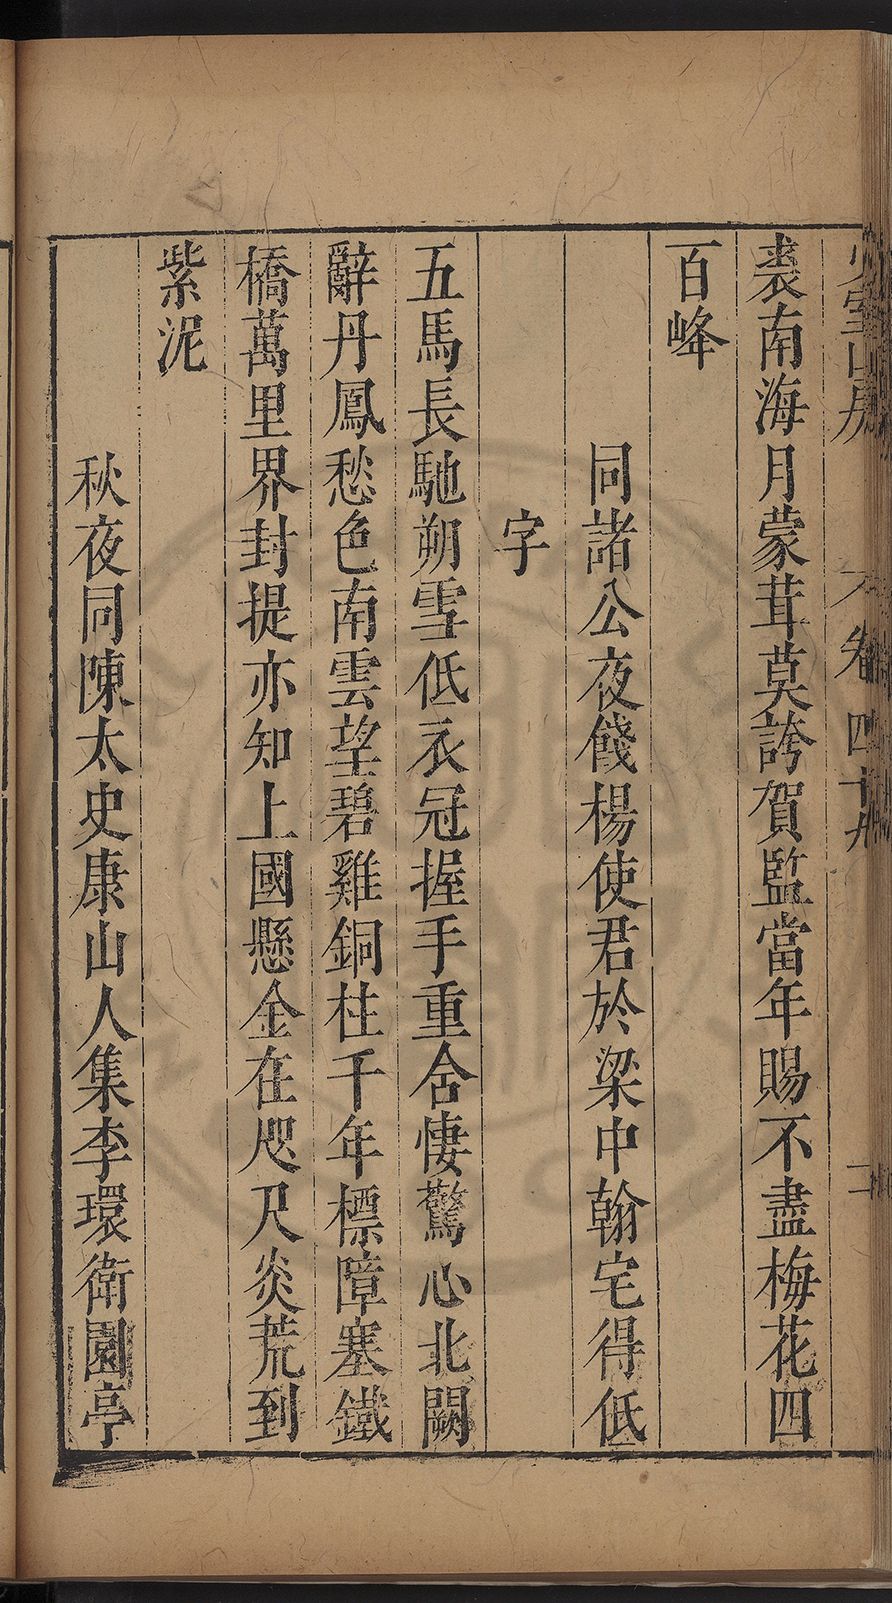 少室山房 卷四十九 二
裘南海月蒙茸莫誇賀監當年賜不盡梅花四
百峰
同諸公夜餞楊使君於梁中翰宅得低
字
五馬長馳朔雪低衣冠握手重含悽驚心北闕
辭丹鳳愁色南雲望碧雞銅柱千年標障塞鐵
橋萬里界封提亦知上國懸金在咫尺炎荒到
紫泥
秋夜同陳太史康山人集李環衛園亭